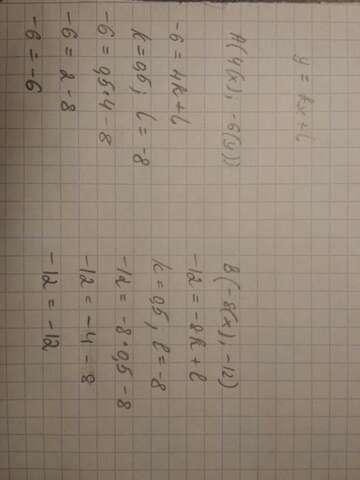 y = kx + l
A(4(x); -6(y))
-6 = 4k + l
k = 0,5, l = -8
-6 = 0,5·4 - 8
-6 = 2 - 8
-6 = -6
B(-8(x); -12)
-12 = -8k + l
k = 0,5, l = -8
-12 = -8·0,5 - 8
-12 = -4 - 8
-12 = -12